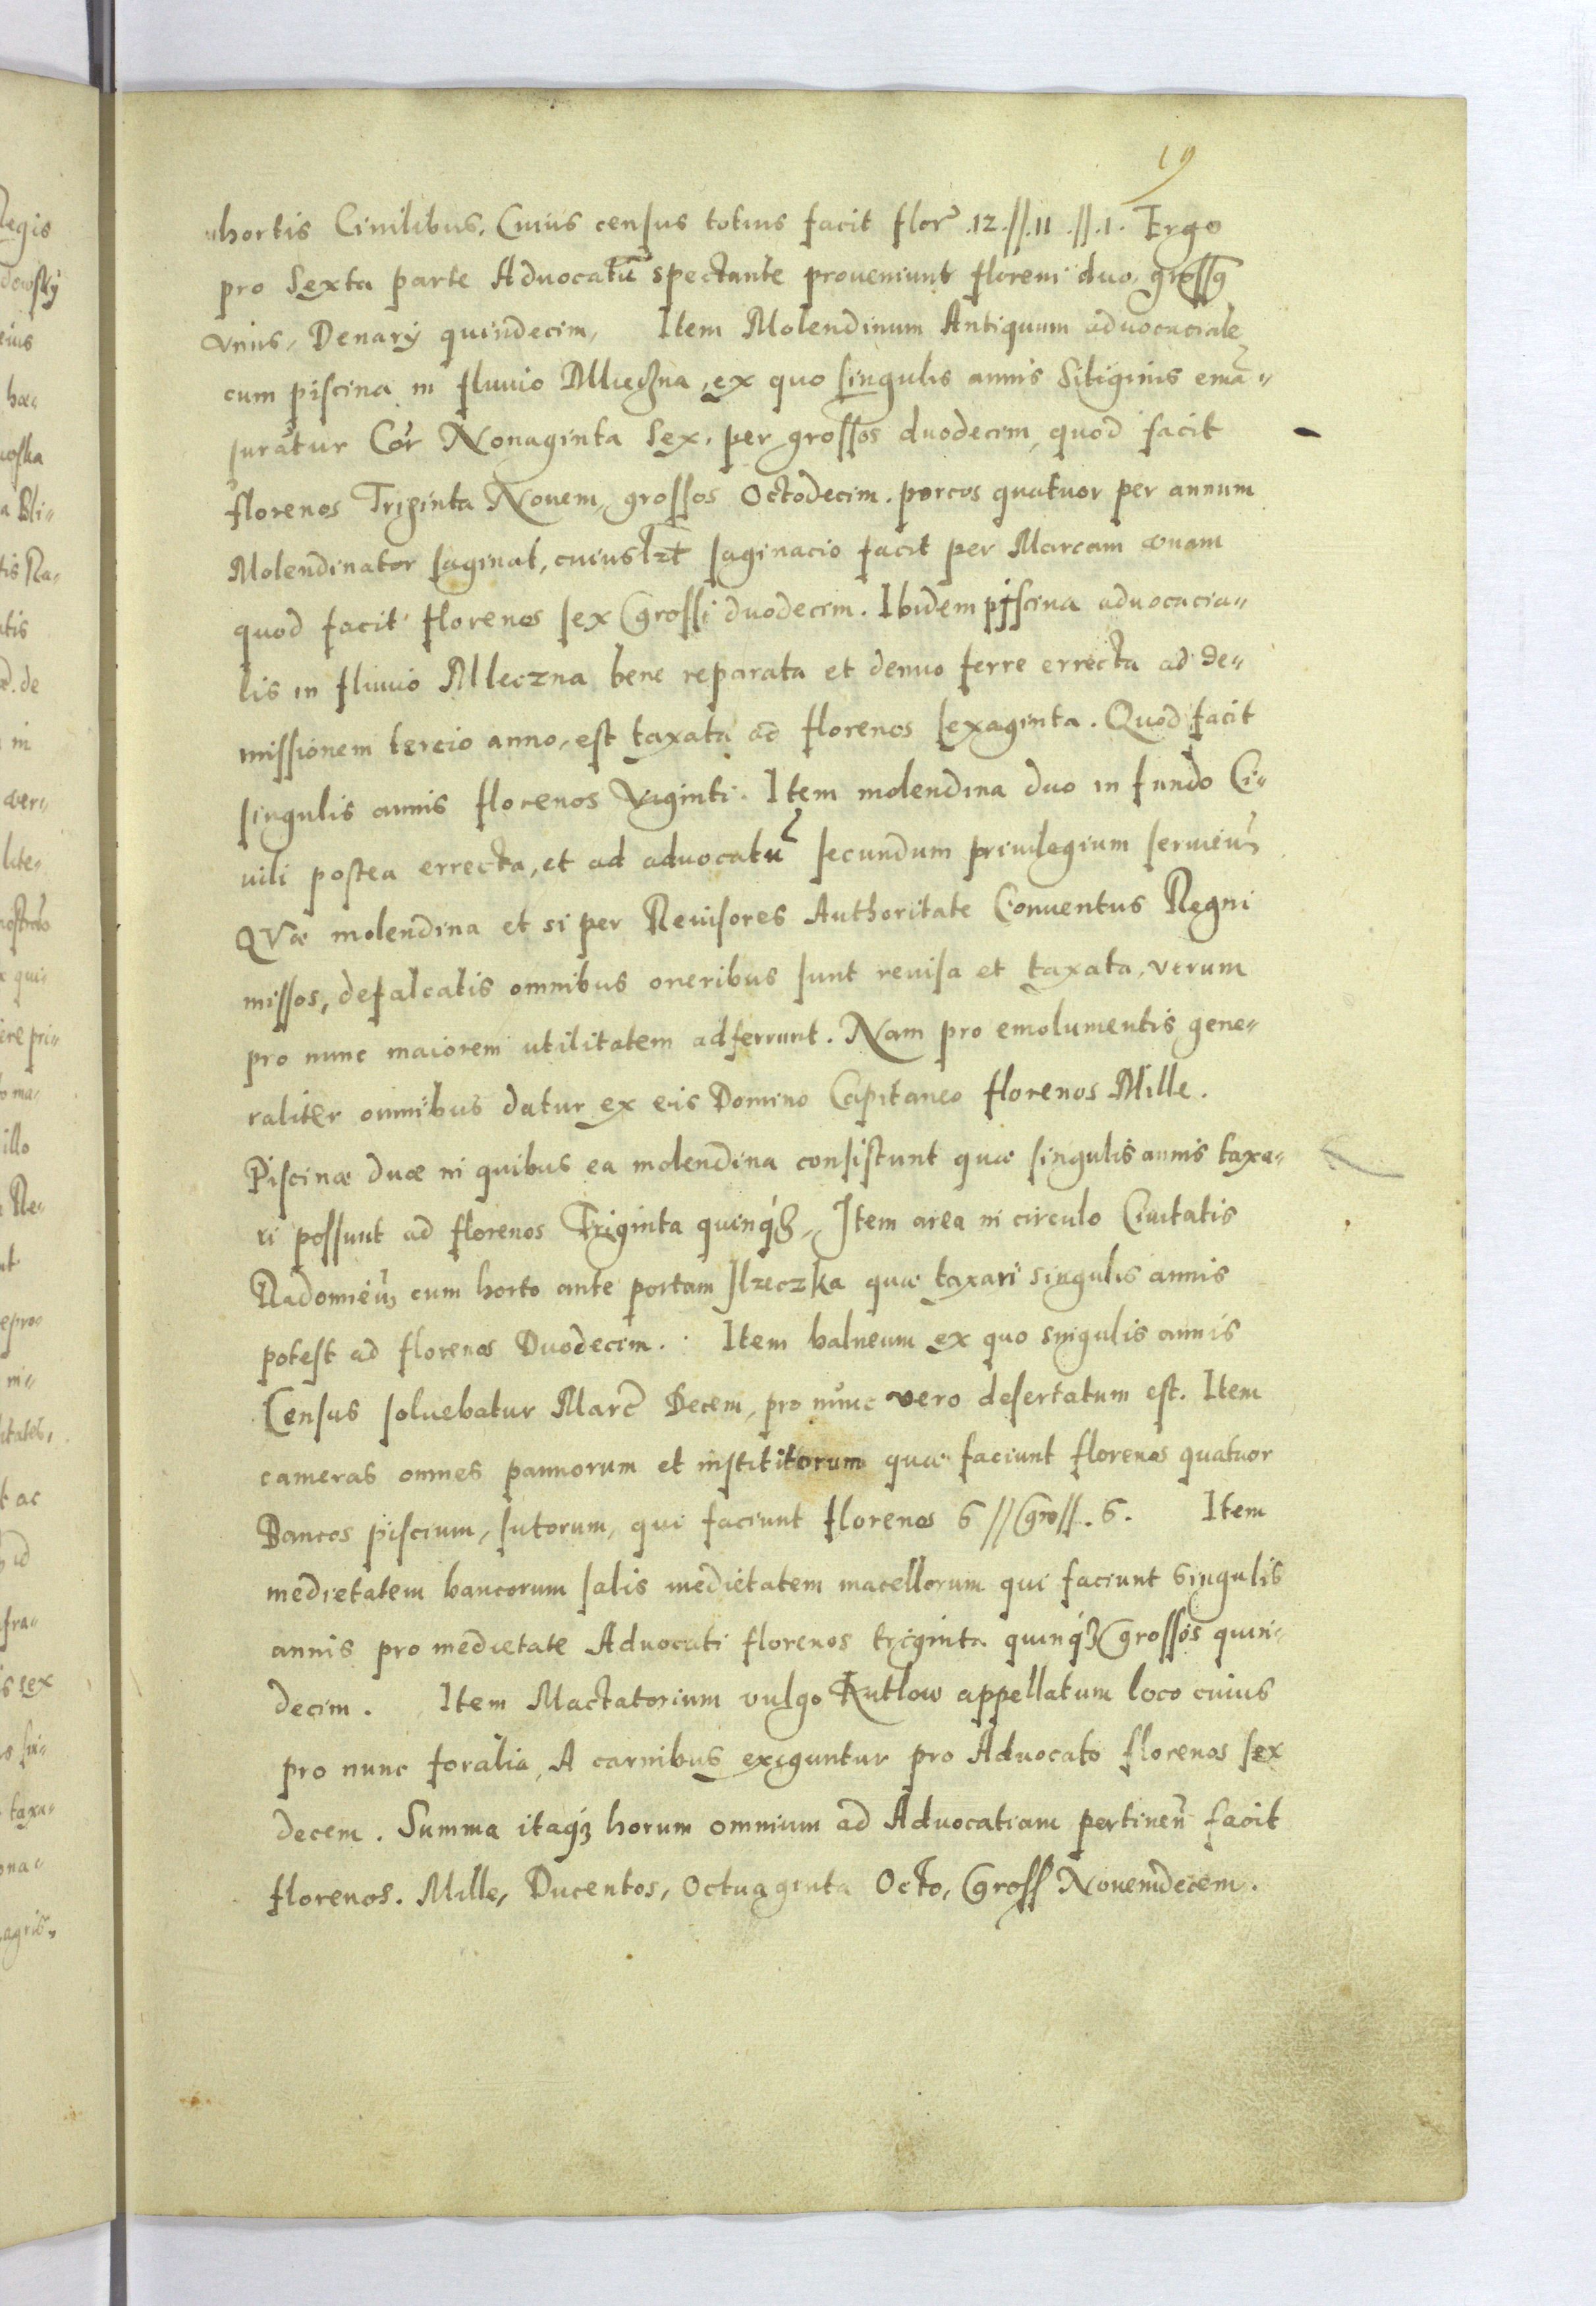 19
hortis Ciuilibus. Cuius census totius facit flor .12.//.11.//.1. Ergo
pro Sexta parte Aduocatū spectante proueniunt floreni duo, gross9
vnus, Denarÿ quindecim, Item Molendinum Antiquum aduocaciale
cum piscina in fluuio Mleczna, ex quo singulis annis Siliginis emā-
suratur Cor Nonaginta Sex. per grossos duodecim, quod facit
florenos Triginta Nouem, grossos Octodecim. porcos quatuor per annum
Molendinator saginat, cuiuslzt saginacio facit per Marcam vnam
quod facit florenos sex Grossi duodecim. Ibidem piscina aduocacia-
lis in fluuio Mleczna bene reparata et denuo ferre errecta ad de-
missionem tercio anno, est taxata ad florenos sexaginta. Quod facit
singulis annis florenos Viginti. Item molendina duo in fundo Ci-
uili postea errecta, et ad aduocatū secundum priuilegium seruieñ
QVæ molendina et si per Reuisores Authoritate Conuentus Regni
missos, defalcatis omnibus oneribus sunt reuisa et taxata, verum
pro nunc maiorem utilitatem adferrunt. Nam pro emolumentis gene-
raliter omnibus datur ex eis Domino Capitaneo florenos Mille.
Piscinæ duæ in quibus ea molendina consistunt quæ singulis annis taxa-
ri possunt ad florenos Triginta quinq3, Item area in circulo Ciuitatis
Radomieñ cum horto ante portam Ilzeczka quæ taxari singulis annis
potest ad florenos Duodecim. Item balneum ex quo singulis annis
Census soluebatur Marc̄ Decem, pro nunc vero desertatum est. Item
cameras omnes pannorum et instititorum quæ faciunt florenos quatuor
Bancos piscium, sutorum, qui faciunt florenos 6 // Gross. 6. Item
medietatem bancorum salis medietatem macellorum qui faciunt singulis
annis pro medietate Aduocati florenos triginta quinq3 Grossos quin-
decim. Item Mactatorium vulgo Kutlow appellatum loco cuius
pro nunc foralia, A carnibus exiguntur pro Aduocato florenos sex
decem. Summa itaq3 horum omnium ad Aduocatiam pertineñ facit
florenos. Mille, Ducentos, Octuaginta Octo, Gross Nouemdecem.